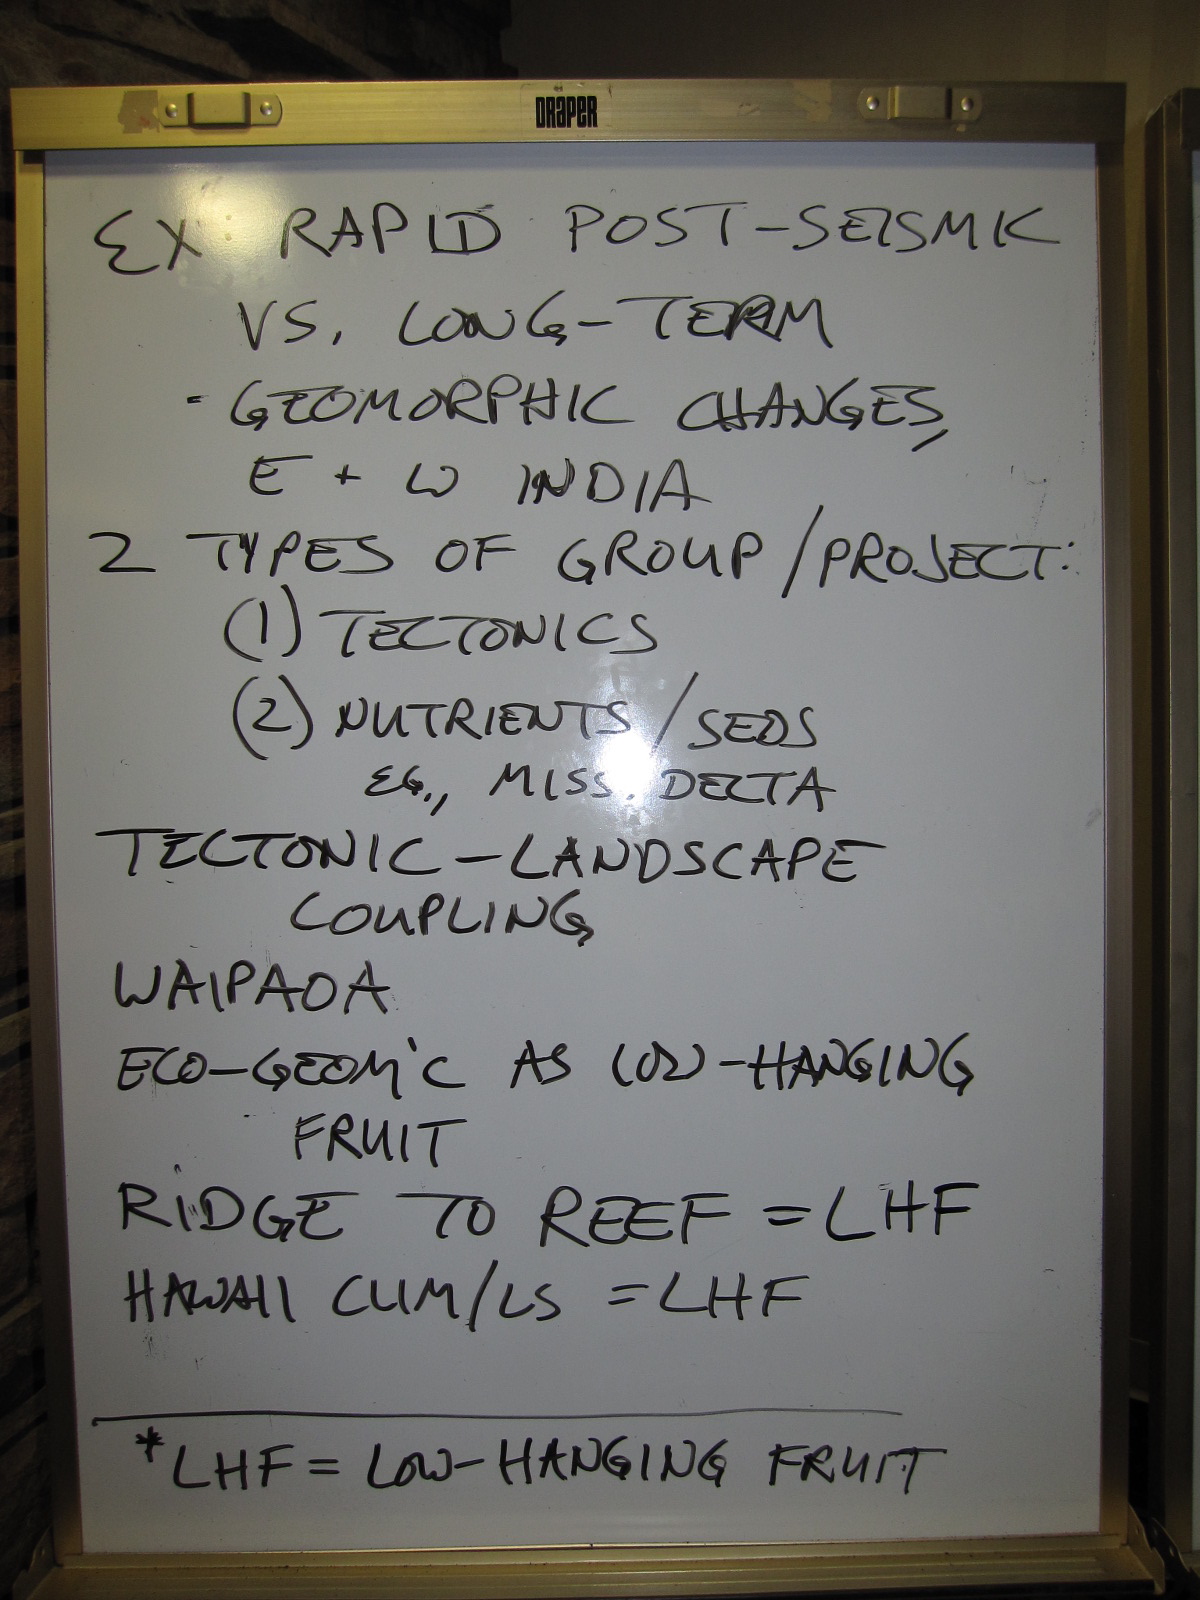 DRAPER
EX: RAPID POST-SEISMIC
VS. LONG-TERM
- GEOMORPHIC CHANGES,
E + W INDIA
2 TYPES OF GROUP/PROJECT:
(1) TECTONICS
(2) NUTRIENTS/SEDS
EG., MISS. DELTA
TECTONIC-LANDSCAPE
COUPLING
WAIPAOA
ECO-GEOM'C AS LOW-HANGING
FRUIT
RIDGE TO REEF = LHF
HAWAII CLIM/LS = LHF
*LHF = LOW-HANGING FRUIT